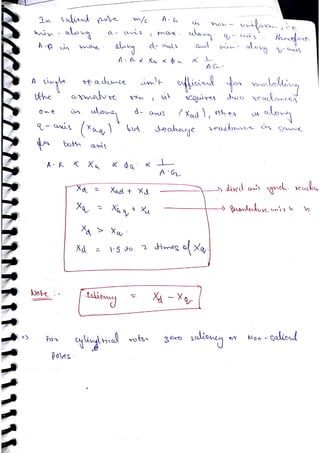 In salient pole m/c A.G is non-uniform, i.e
min. along d-axis, max. along q-axis. Therefore
A.R is max along d-axis and min. along q-axis
A.R ∝ Xa ∝ ϕa ∝ 1/AG
A single reactance isn't sufficient for modelling
the armature rxn, it requires two reactances
one is along d-axis (Xad), other is along
q-axis (Xaq) but leakage reactance is same
for both axis
A.R ∝ Xa ∝ ϕa ∝ 1/A.G
Xd = Xad + Xl → direct axis synch. reactance
Xq = Xaq + Xl → Quadrature axis " "
Xd > Xq
Xd = 1.5 to 2 times of Xq
Note :- Saliency = Xd - Xq
For cylindrical rotor zero saliency or Non-salient
poles.